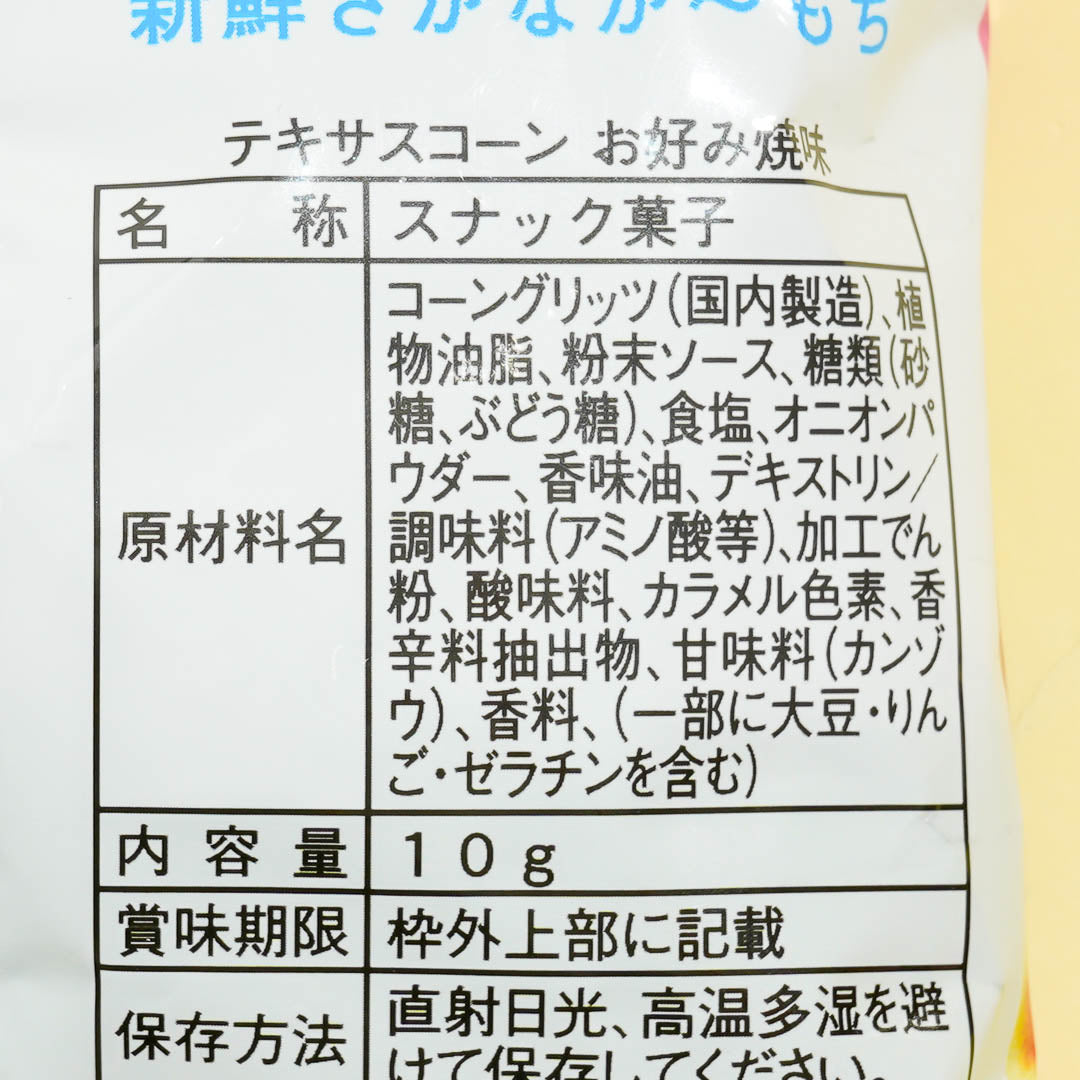 新鮮さがながーもち
テキサスコーン お好み焼味
名称 スナック菓子
原材料名
コーングリッツ(国内製造)、植
物油脂、粉末ソース、糖類(砂
糖、ぶどう糖)、食塩、オニオンパ
ウダー、香味油、デキストリン/
調味料(アミノ酸等)、加工でん
粉、酸味料、カラメル色素、香
辛料抽出物、甘味料(カンゾ
ウ)、香料、(一部に大豆・りん
ご・ゼラチンを含む)
内容量 10g
賞味期限 枠外上部に記載
保存方法
直射日光、高温多湿を避
けて保存してください。